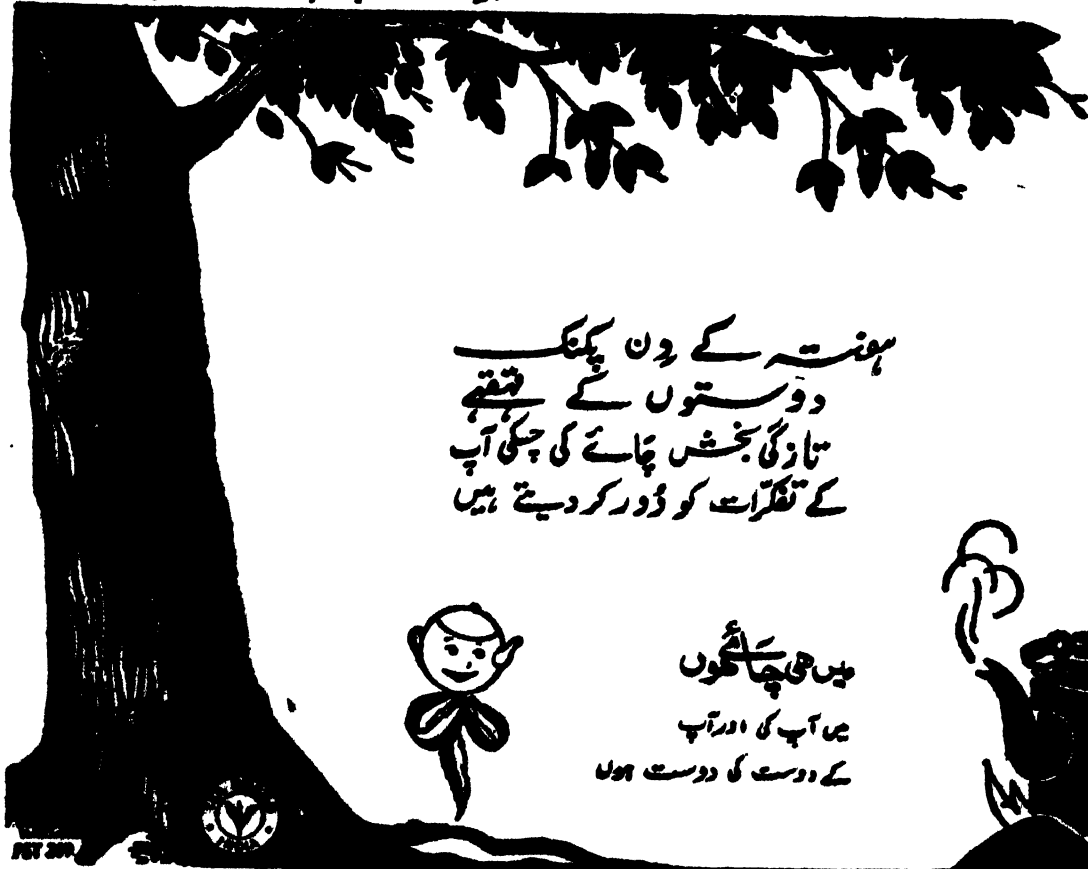 ہفتہ کے دِن پکنک
دوستوں کے قہقہے
تازگی بخش چائے کی چسکی آپ
کے تفکرّات کو دُور کر دیتے ہیں
میں ھی چائے ھوں
میں آپ کی اور آپ
کے دوست کی دوست ہوں
INDIA